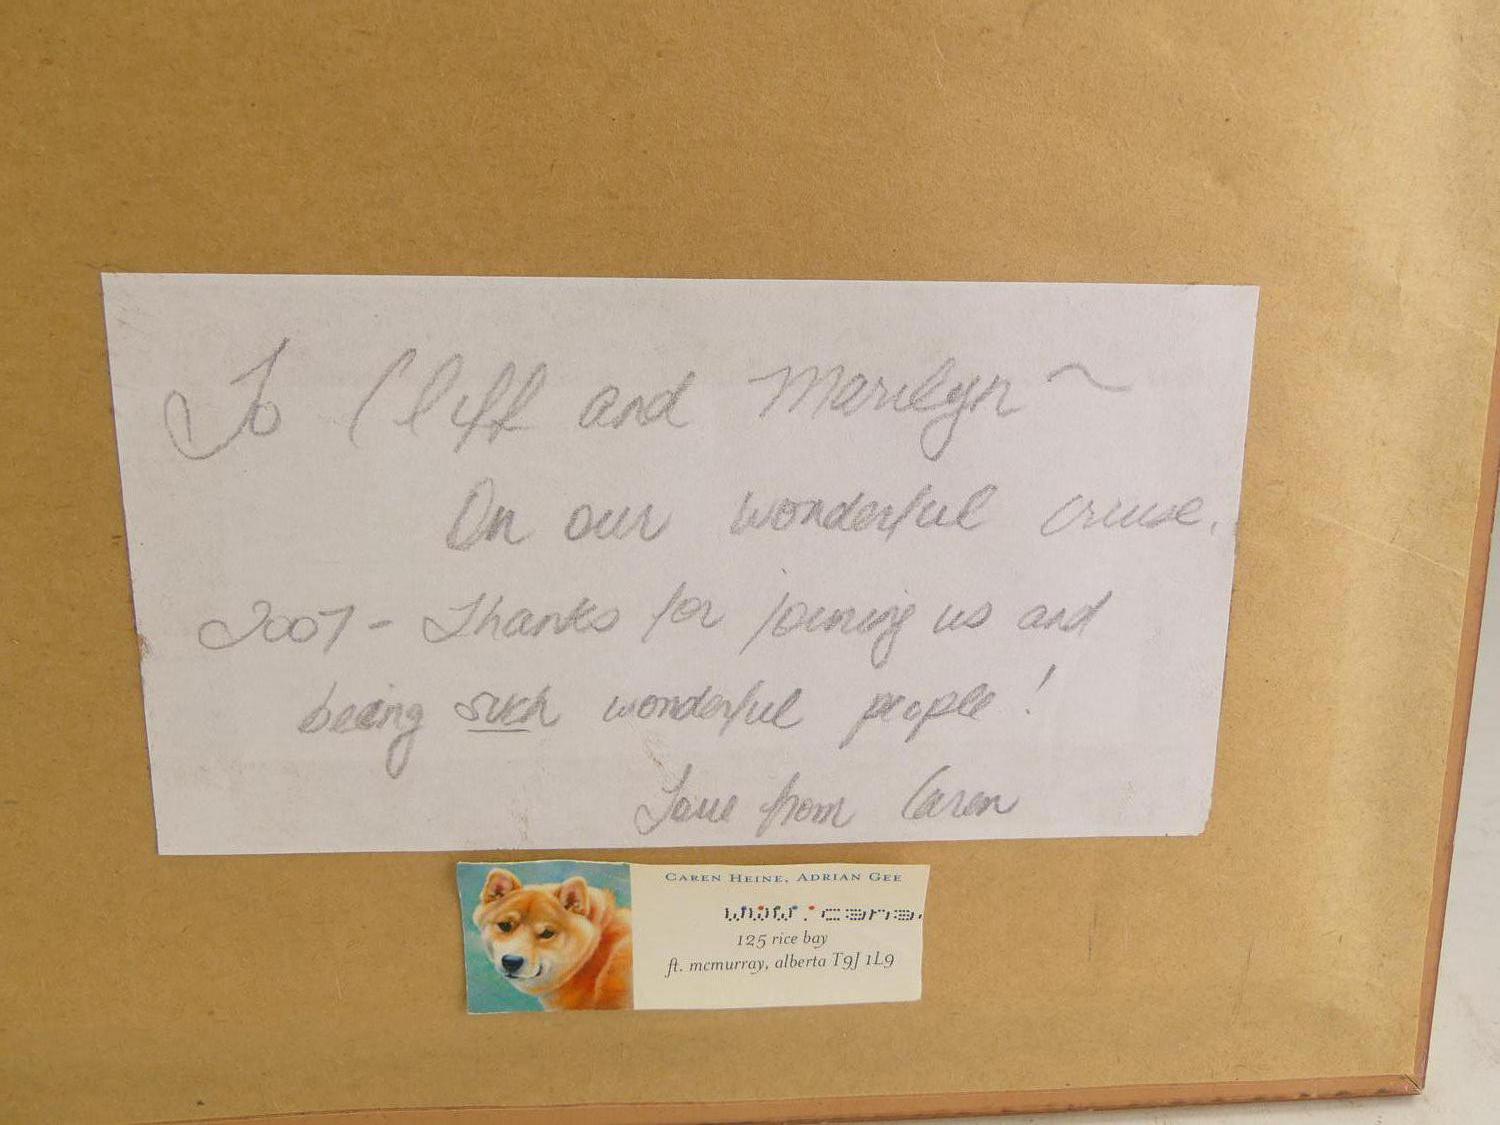 To Cliff and Marilyn ~
On our wonderful cruise.
2007 - Thanks for joining us and
being such wonderful people!
Love from Caren
CAREN HEINE, ADRIAN GEE
www.cana.
125 rice bay
ft. mcmurray, alberta T9J 1L9